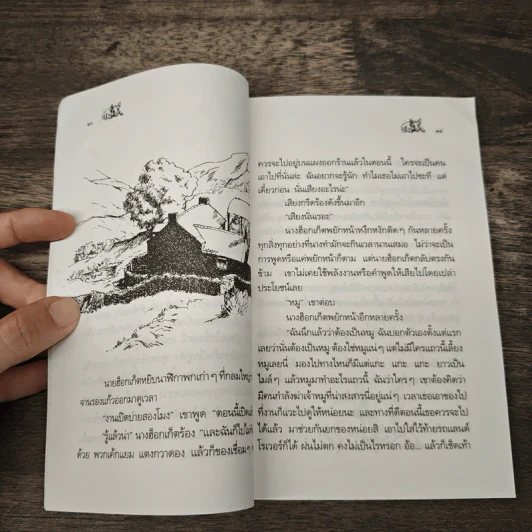 ๒๘
นายฮ็อกเก็ตหยิบนาฬิกาพกเก่าๆ ที่กลมใหญ่
จานรองแก้วออกมาดูเวลา
"งานเปิดบ่ายสองโมง" เขาพูด "ตอนนี้
"รู้แล้วน่า" นางฮ็อกเก็ตร้อง "และฉันก็
ด้วย พวกเค้กแยม แตงกวาดอง แล้วก็ของเชื่อมๆ
๒๙
ควรจะไปอยู่บนแผงออกร้านแล้วในตอนนี้ ใครจะเป็นคน
เอาไปที่นั่นล่ะ ฉันอยากจะรู้นัก ทำไมเธอไม่เอาไปซะที แต่
เดี๋ยวก่อน นั่นเสียงอะไรน่ะ"
เสียงกรีดร้องดังขึ้นมาอีก
"เสียงนั่นเรอะ"
นางฮ็อกเก็ตพยักหน้าหงึกหงักติดๆ กันหลายครั้ง
ทุกสิ่งทุกอย่างที่นางทำมักจะกินเวลานานเสมอ ไม่ว่าจะเป็น
การพูดหรือแค่พยักหน้าก็ตาม แต่นายฮ็อกเก็ตกลับตรงกัน
ข้าม เขาไม่เคยใช้พลังงานหรือคำพูดให้เสียไปโดยเปล่า
ประโยชน์เลย
"หมู" เขาตอบ
นางฮ็อกเก็ตพยักหน้าอีกหลายครั้ง
"ฉันนึกแล้วว่าต้องเป็นหมู ฉันบอกตัวเองตั้งแต่แรก
เลยว่านั่นต้องเป็นหมู ต้องใช่หมูแน่ๆ แต่ไม่มีใครแถวนี้เลี้ยง
หมูเลยนี่ มองไปทางไหนก็มีแต่แกะ แกะ แกะ ยาวเป็น
ไมล์ๆ แล้วหมูมาทำอะไรแถวนี้ ฉันว่าใครๆ เขาต้องคิดว่า
มีคนกำลังฆ่าเจ้าหมูที่น่าสงสารนี่อยู่แน่ๆ เวลาเธอเอาของไป
ที่งานก็แวะไปดูให้หน่อยนะ และทางที่ดีตอนนี้เธอควรจะไป
ได้แล้ว มาช่วยกันยกของหน่อยสิ เอาไปใส่ไว้ท้ายรถแลนด์
โรเวอร์ก็ได้ ฝนไม่ตก คงไม่เป็นไรหรอก อ้อ... แล้วก็เช็ดเท้า